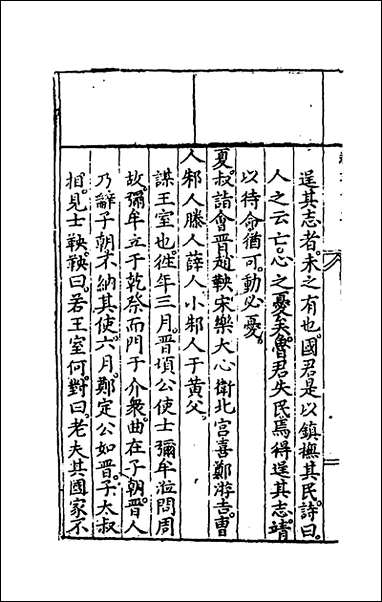 逞其志者。未之有也。國君是以鎮撫其民。詩曰。
人之云亡。心之憂矣。魯君失民焉。得逞其志。靖
以待命猶可。動必憂。
夏。叔詣會晋趙鞅宋樂大心衛北宮喜鄭游吉曹
人邾人滕人薛人小邾人于黄父。
謀王室也。徃年三月。晋頃公使士彌牟涖問周
故。彌牟立于乾祭而門于介衆。曲在子朝。晋人
乃辭子朝。不納其使。六月。鄭定公如晋。子太叔
相。見士鞅。鞅曰。若王室何。對曰。老夫其國家不